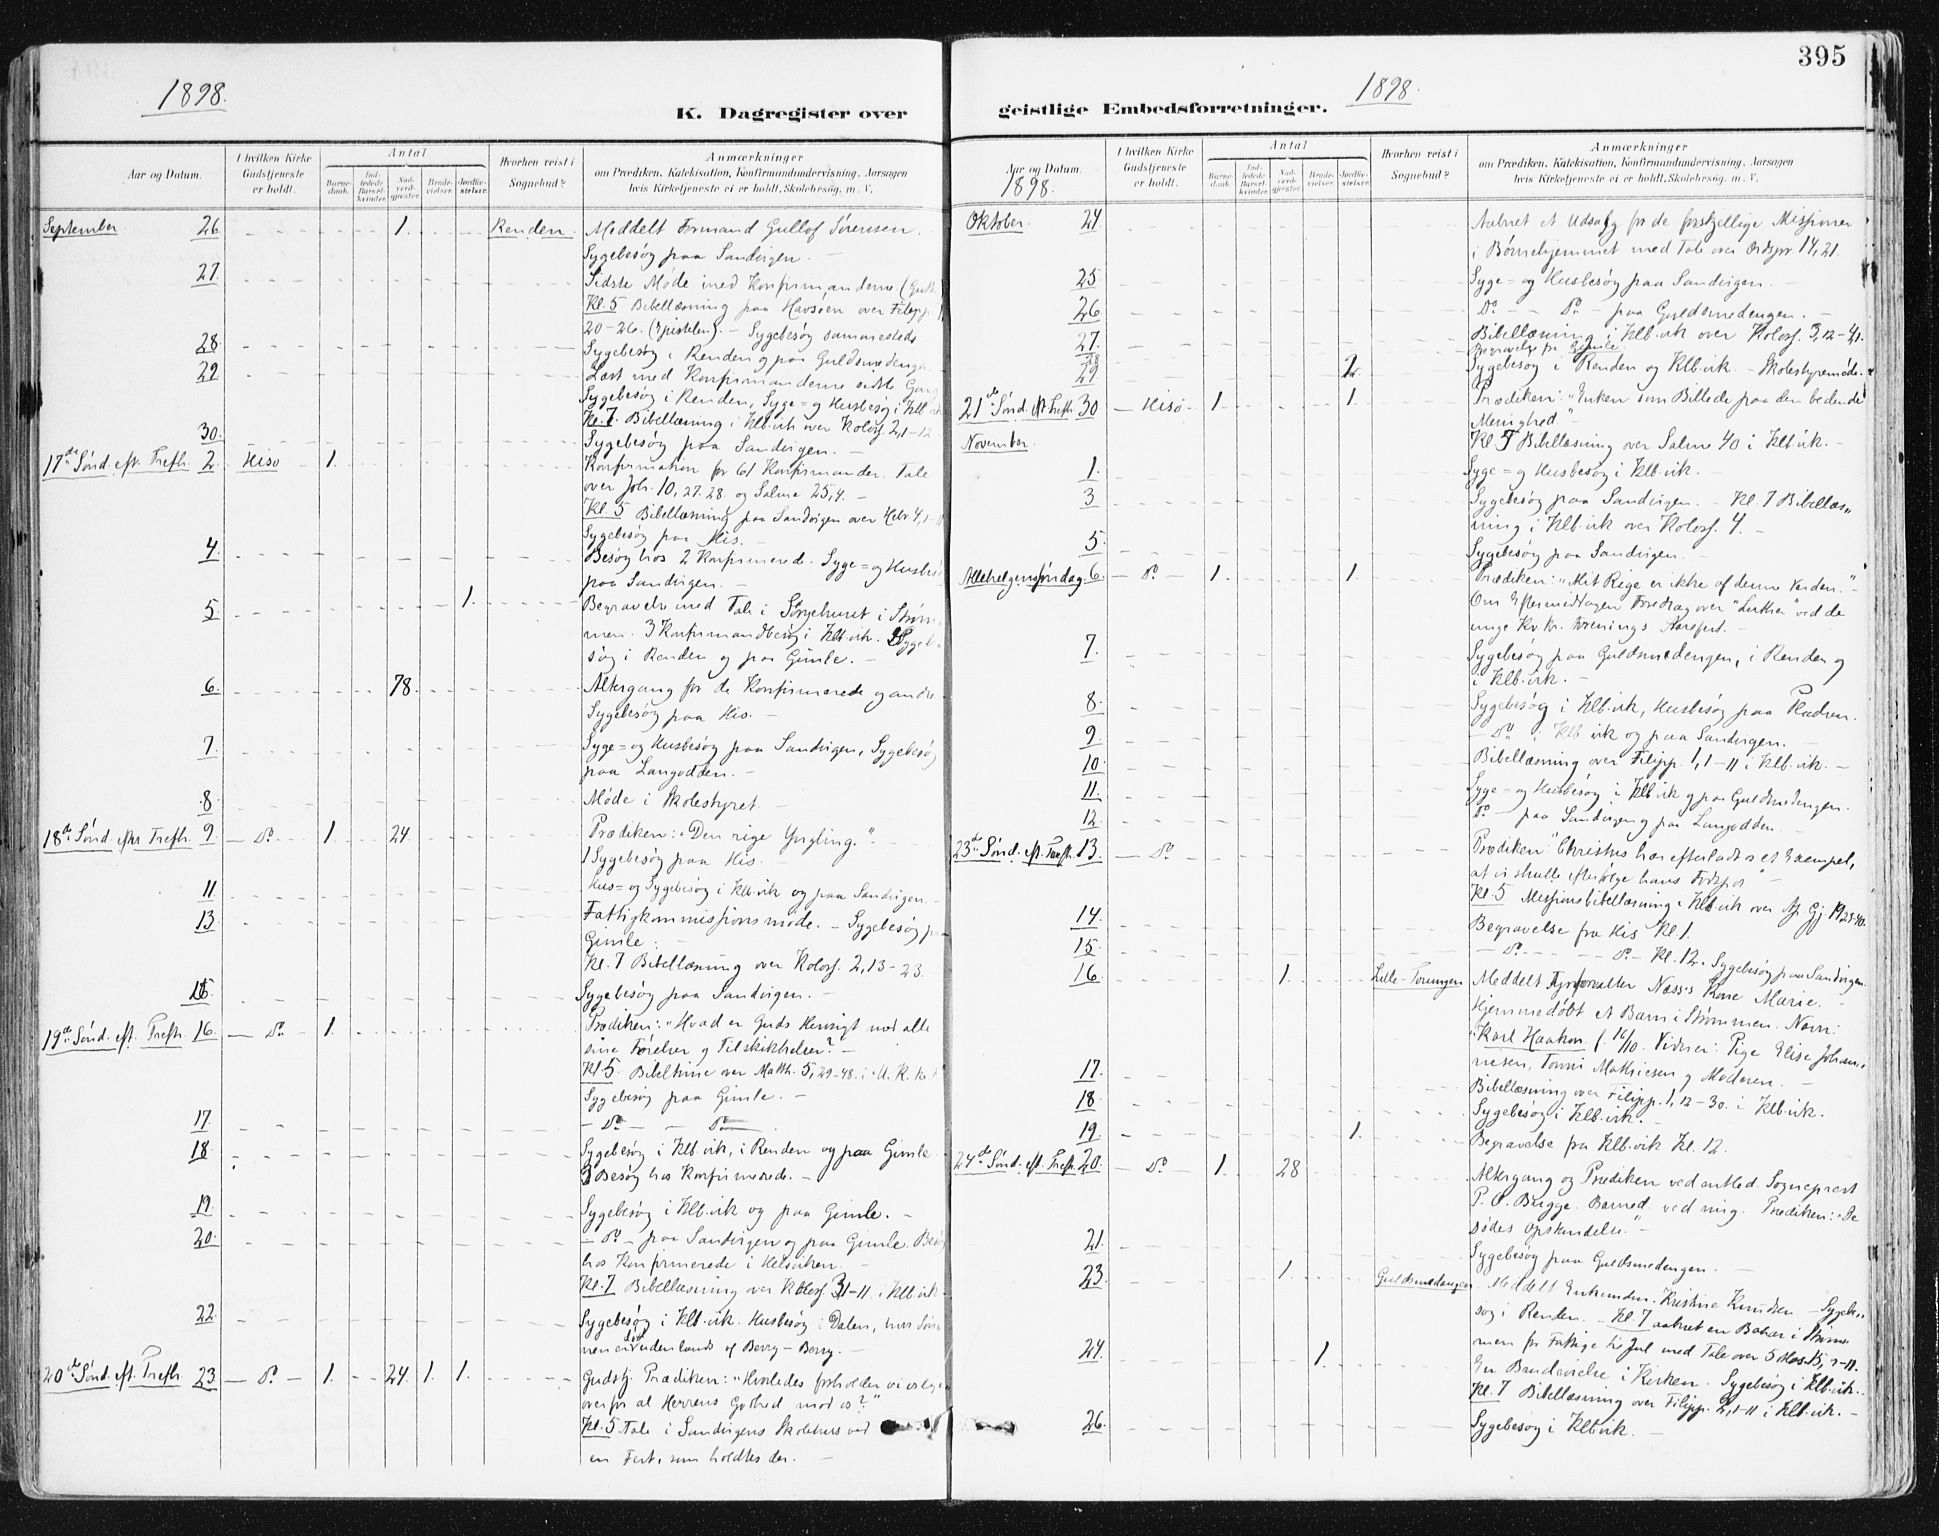 395
1898.
K. Dagregister over
Aar og Datum.
I hvilken Kirke Gudstjeneste er holdt.
Antal
Barne-daab.
Ind-ledede Barsel-kvinder.
Nad-verd-gjæster.
Brude-vielser.
Jordfæ-stelser.
Hvorhen reist i Sognebud?
Anmærkninger
om Prædiken, Katekisation, Konfirmandundervisning, Aarsagen
hvis Kirketjeneste ei er holdt, Skolebesøg, m. V.
September 26. 1. Renden Meddelt Formand Gullof Sørensen.
Sygebesøg paa Sandvigen. —
27. Sidste Møde med Konfirmanderne
Kl. 5 Bibellæsning paa Havsøen over Filipp.
20-26. (Epistelen). — Sygebesøg sammesteds
28 Sygebesøg i Renden og paa Guldsmedeng
29 Læst med Konfirmanderne sidste Gang
Sygebesøg i Renden, Syge= og Husbesøg i Klb.vik
Kl. 7. Bibellæsning i Klb.vik over Koloss. 2,1-12
30. Sygebesøg paa Sandvigen. —
17de Sønd. eft. Trefh. 2 Hisø 1. Konfirmation for 61 Konfirmander. Tale
over Joh. 10, 27. 28. og Salme 25,4. —
Kl. 5 Bibellæsning paa Sandvigen over Hebr 4,1-11
Sygebesøg paa His. —
4. Besøg hos 2 Konfirmerede. Syge= og Husbes
paa Sandvigen. —
5 1. Begravelse med Tale i Sørgehuset i Strøm
men. 3 Konfirmandbesøg i Klb.vik. Sygeb
søg i Renden og paa Gimle. —
6. 78 Altergang for de Konfirmerede og andre
Sygebesøg paa His. —
7. Syge= og Husbesøg paa Sandvigen, Sygebesøg
paa Langodden. —
8. Møde i Skolestyret. —
18de Sønd. efter Trefh. 9. — Do. 1. 24. Prædiken: "Den rige Yngling." —
1 Sygebesøg paa His. —
11 Hus= og Sygebesøg i Klb.vik og paa Sandvigen. —
13. Fattigkommissionsmøde. — Sygebesøg p
Gimle. —
Kl. 7 Bibellæsning over Koloss. 2, 13-23.
15 Sygebesøg paa Sandvigen. —
19de Sønd. eft. Trefh. 16. — Do. 1. Prædiken: "Hvad er Guds Hensigt med alle
sine Førelser og Tilskikkelser?" —
Kl. 5. Bibeltime over Matth. 5, 29-48. i U. K.
Sygebesøg paa Gimle. —
17. — Do — Do —
18. Sygebesøg i Klb.vik, i Renden og paa Gimle
3 Besøg hos Konfirmerede. —
19. Sygebesøg i Klb.vik og paa Gimle. —
20. — Do. — paa Sandvigen og paa Gimle. Besøg
hos Konfirmerede i Helsviken. —
Kl. 7 Bibellæsning over Koloss. 3,1-11. i Klb.vik
22. Sygebesøg i Klb.vik. Husbesøg i Dalen, hvis Søn
døde udenlands af Berry-Berry. —
20de Sønd. eft. Trefh. 23 — Do — 1. 24. 1. 1. Gudstj. Prædiken: "Hvorledes forholder vi os lige
overfor al Herrens Godhed mod os?"
Kl. 5 Tale i Sandvigens Skolehus ved
en Fest, som holdtes der. —
geistlige Embedsforretninger.
1898.
Aar og Datum.
1898.
I hvilken Kirke Gudstjeneste er holdt.
Antal
Barne-daab.
Ind-ledede Barsel-kvinder.
Nad-verd-gjæster.
Brude-vielser.
Jordfæ-stelser.
Hvorhen reist i Sognebud?
Anmærkninger
om Prædiken, Katekisation, Konfirmandundervisning, Aarsagen
hvis Kirketjeneste ei er holdt, Skolebesøg, m. V.
Oktober. 24. Aabnet et Udsalg for de forskjellige Missioner
i Børnehjemmet med Tale over Ordspr. 14, 21.
25 Syge= og Husbesøg paa Sandvigen. —
26 Do. — Do. — paa Guldsmedengen. —
27. Bibellæsning i Klb.vik over Koloss. 3, 12-4,1.
28 Begravelse fra Gimle
29 2. Sygebesøg i Renden og Klb.vik. — Skolestyremøde.
21de Sønd. eft. Trefh. 30 — Hisø — 1. 1. Prædiken: "Enken som Billede paa den bedende
Menighed"
November. Kl. 5 Bibellæsning over Salme 40 i Klb.vik. —
1. Syge= og Husbesøg i Klb.vik. —
3 Sygebesøg paa Sandvigen. — Kl. 7 Bibellæs„
ning i Klb.vik over Koloss. 4. —
5 Sygebesøg paa Sandvigen. —
Allehelgensøndag. 6. — Do. — 1. 1. Prædiken: "Mit Rige er ikke af denne Verden." —
Om Eftermiddagen Foredrag over "Luther" ved de
unge Kv. kr. Forenings Aarsfest. —
7. Sygebesøg paa Guldsmedengen, i Renden og
i Klb.vik. —
8. Sygebesøg i Klb.vik, Husbesøg paa Pladsen.
9. — Do. i Klb vik og paa Sandvigen. —
10. Bibellæsning over Filipp. 1, 1-11 i Klb.vik. —
11. Syge= og Husbesøg i Klb vik og paa Guldsmedengen.
12. Do. — paa Sandvigen og paa Langodden. —
23de Sønd. eft. Trefh. 13. — Do. Prædiken: "Christus har efterladt os et Exempel,
at vi skulle efterfølge hans Fodspor" —
Kl. 5 Missionsbibellæsning i Klb.vik over Ap. Gj. 19,23-40.
14. Begravelse fra His Kl. 1.
15. — Do. — Do — Kl. 12. Sygebesøg paa Sandvigen.
16 1. Lille-Torungen Meddelt Fyrforvalter Næss's Kone Marie. —
Hjemmedøbt et Barn i Strømmen. Navn:
"Karl Haakon f. 16/10. Vidner: Pige Elise Johan„
nesen, Tomi Mathiesen og Moderen. —
17. Bibellæsning over Filipp. 1, 12-30. i Klb.vik.
18 Sygebesøg i Klb.vik. —
19. 1. Begravelse fra Klb.vik Kl. 12.
24de Sønd. eft. Trefh. 20. — Do. — 1. 28 Altergang og Prædiken ved entled. Sogneprest
P. O. Bugge. Barned. ved mig. Prædiken: "De
dødes Opstandelse." —
21. Sygebesøg paa Guldsmedengen. —
23. 1. Guldsmedengen Meddelt Enkemadam Kristine Knudsen — Sygebe„
søg i Renden. — Kl. 7 aabnet en Bazar i Strøm„
men for Fattige til Jul med Tale over 5 Mos. 15, 7-11.
24. 1. En Brudevielse i Kirken. Sygebesøg i Klb.vik.
Kl. 7 Bibellæsning over Filipp. 2,1-11 i Klb.vik. —
26. Sygebesøg i Klb.vik. —